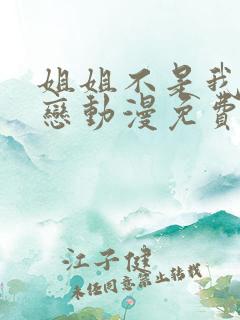 姐姐不是我
戀動漫免費
江子健
未经同意禁止转载